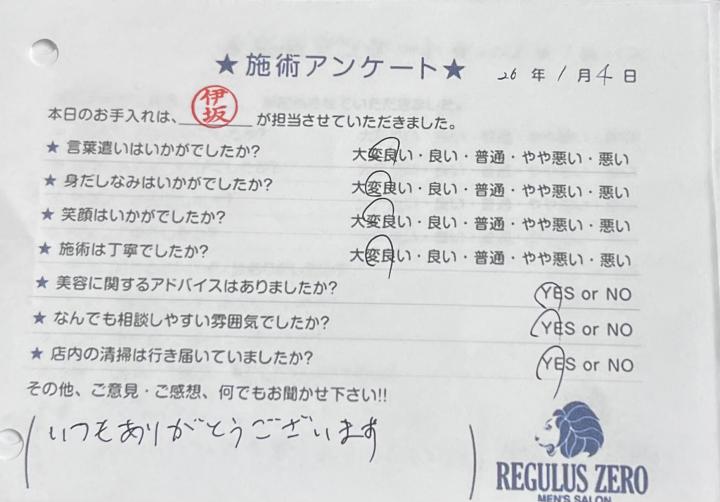 ★施術アンケート★ 26年1月4日
本日のお手入れは、伊坂が担当させていただきました。
★言葉遣いはいかがでしたか? 大変良い・良い・普通・やや悪い・悪い
★身だしなみはいかがでしたか? 大変良い・良い・普通・やや悪い・悪い
★笑顔はいかがでしたか? 大変良い・良い・普通・やや悪い・悪い
★施術は丁寧でしたか? 大変良い・良い・普通・やや悪い・悪い
★美容に関するアドバイスはありましたか? YES or NO
★なんでも相談しやすい雰囲気でしたか? YES or NO
★店内の清掃は行き届いていましたか? YES or NO
その他、ご意見・ご感想、何でもお聞かせ下さい!!
いつもありがとうございます
REGULUS ZERO
MEN'S SALON